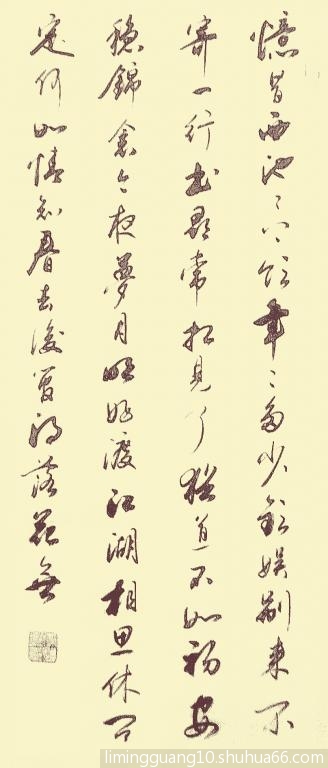 憶昔西池〻上飲年〻多少歡娱别来不
寄一行書尋常相見了猶道不如初安
穩錦衾今夜夢月明好渡江湖相思休问
定何如情知春去後管得落花無
limingguang10.shuhua66.com